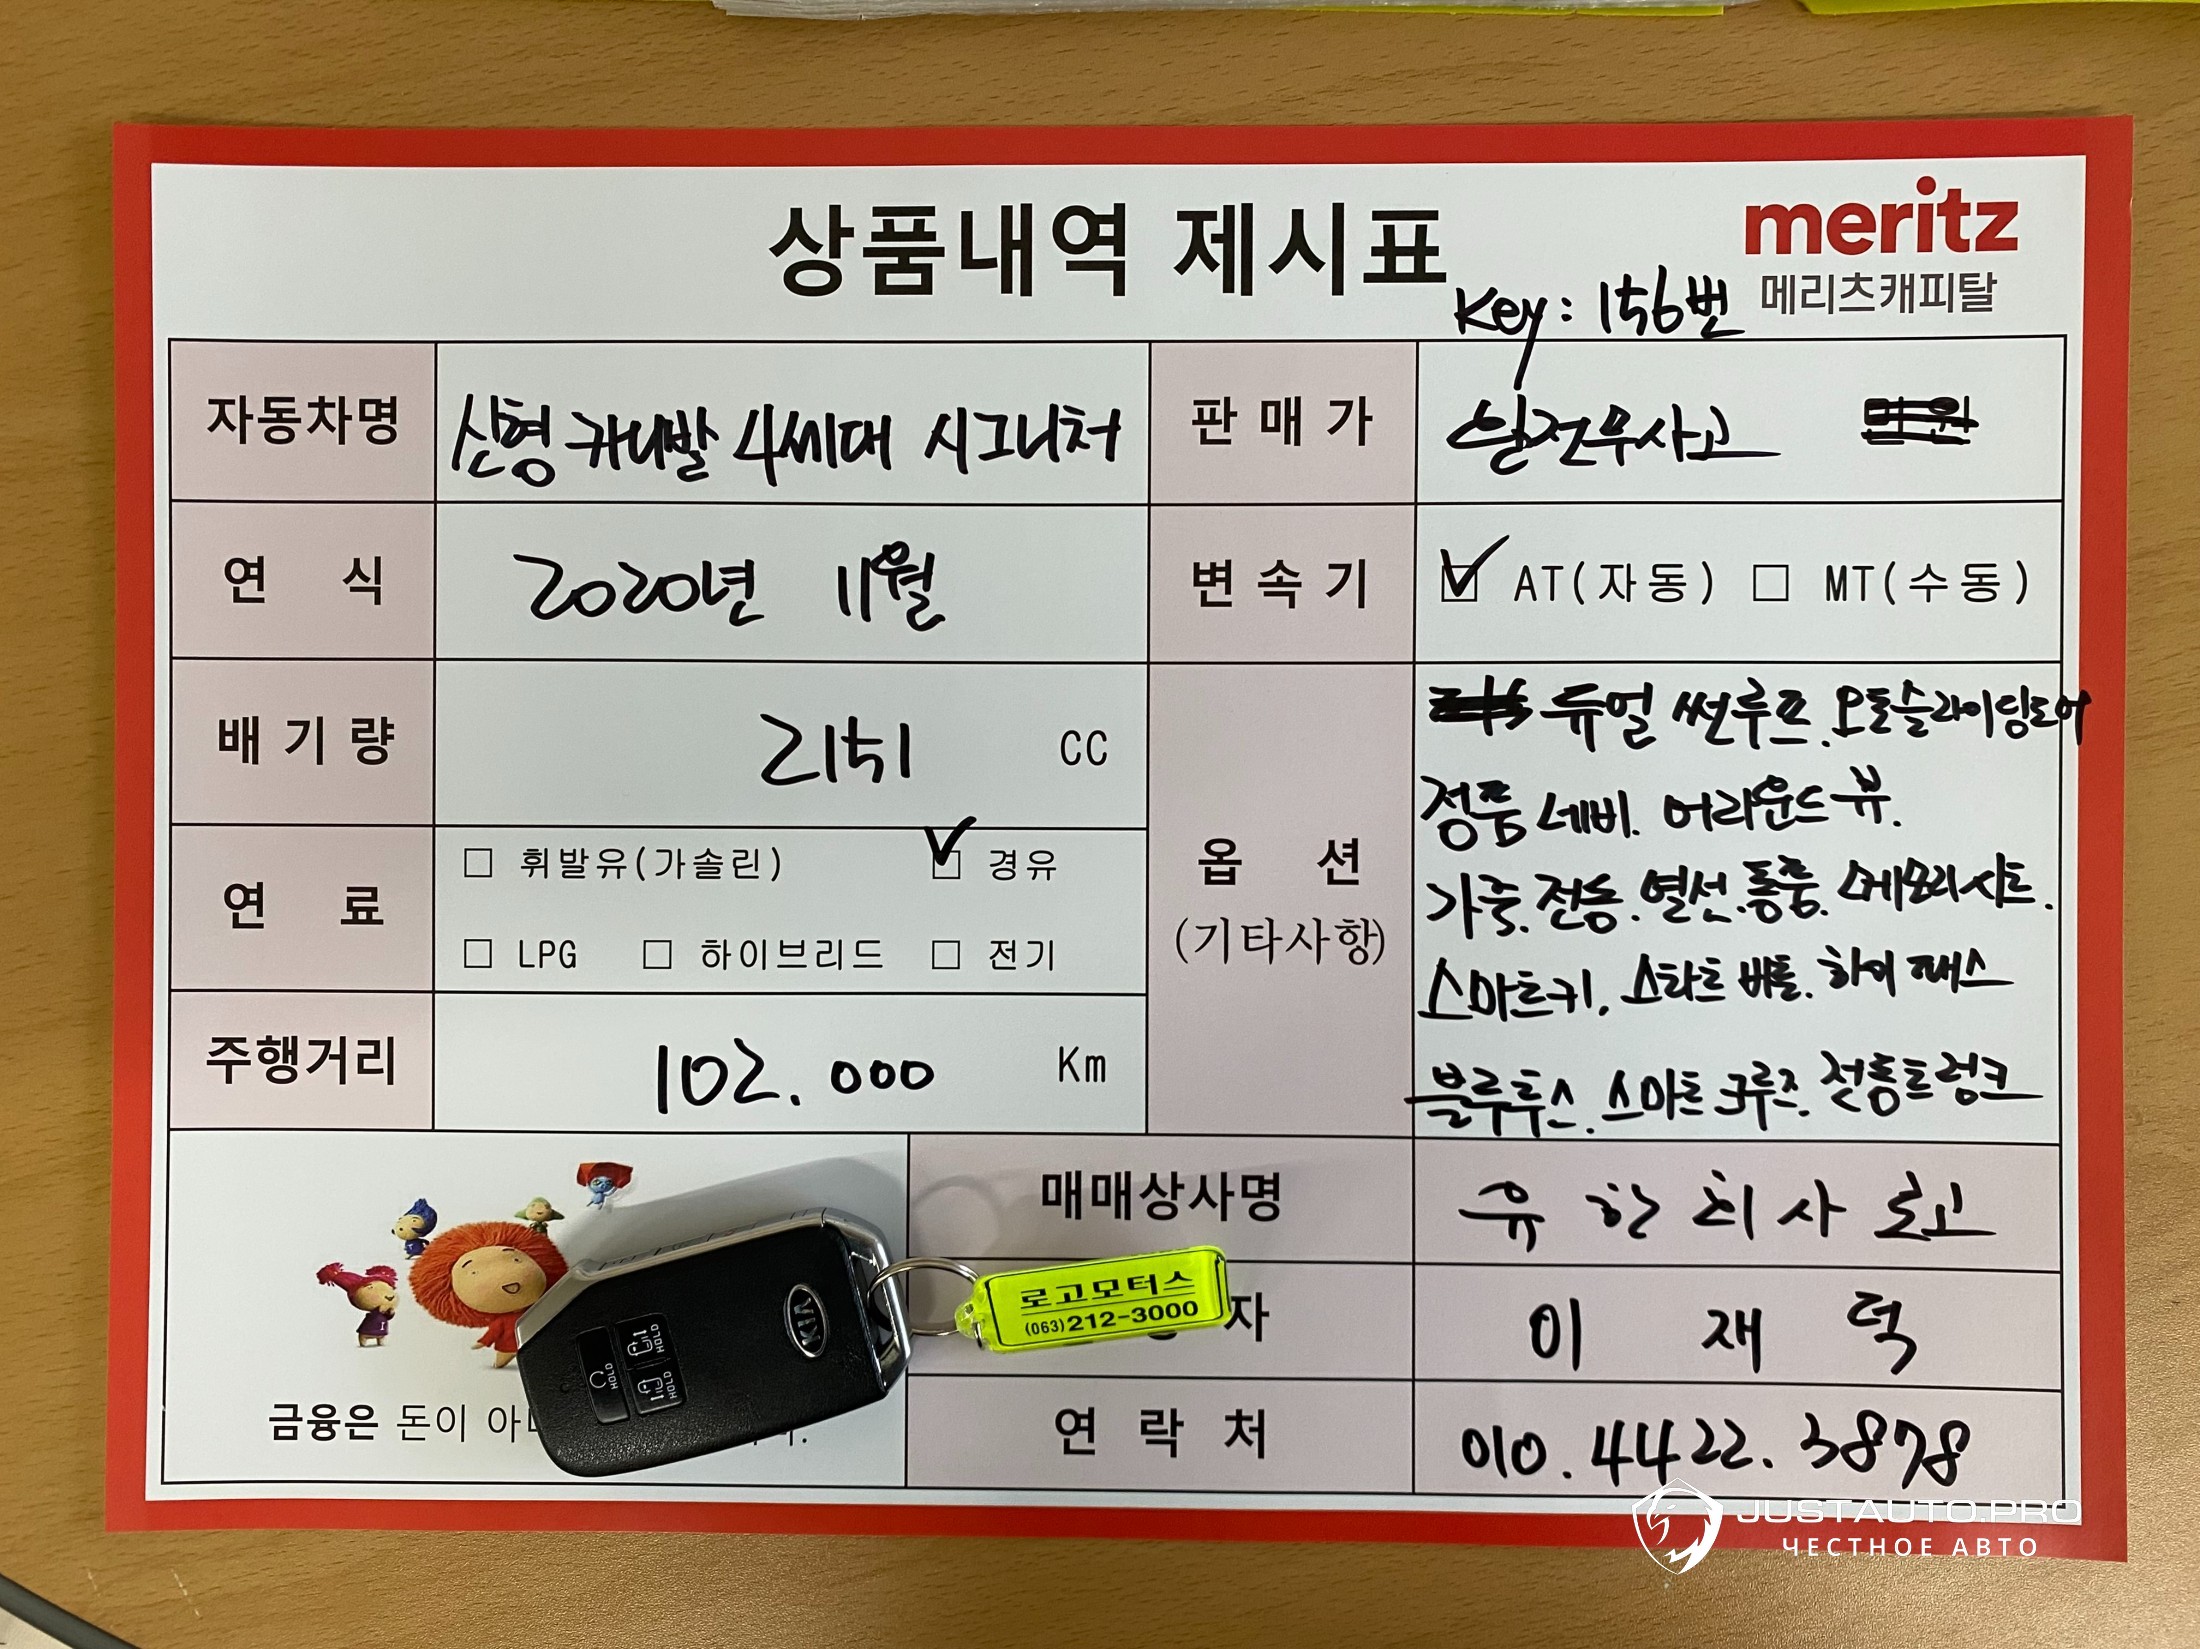 상품내역 제시표
meritz
메리츠캐피탈
Key : 156번
자동차명
신형 카니발 4세대 시그니처
판매가
완전무사고
만원
연식
2020년 11월
변속기
AT(자동) MT(수동)
배기량
2151 CC
연료
휘발유(가솔린) 경유
LPG 하이브리드 전기
주행거리
102.000 Km
옵션
(기타사항)
듀얼 썬루프. 오토슬라이딩도어
정품 네비. 어라운드 뷰.
가죽. 전동. 열선. 통풍. 메모리시트.
스마트키. 스타트 버튼. 하이패스
블루투스. 스마트 크루즈. 전동트렁크
매매상사명
유한회사 로고
자
이재덕
연락처
010.4422.3878
금융은 돈이 아
KIA
HOLD
HOLD
HOLD
로고모터스
(063)212-3000
JUSTAUTO.PRO
ЧЕСТНОЕ АВТО